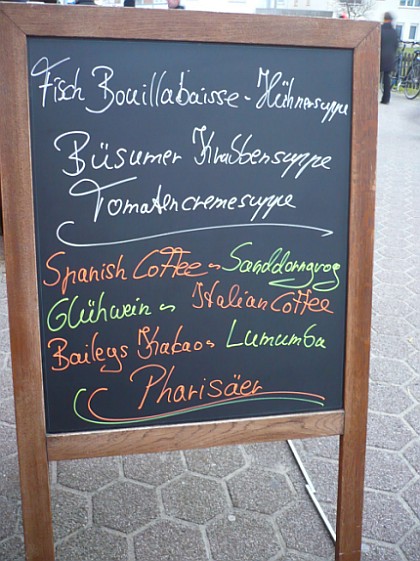 Fisch Bouillabaisse - Hühnersuppe
Büsumer Krabbensuppe
Tomatencremesuppe
Spanish Coffee ~ Sanddorngrog
Glühwein ~ Italian Coffee
Baileys Kakao ~ Lumumba
Pharisäer